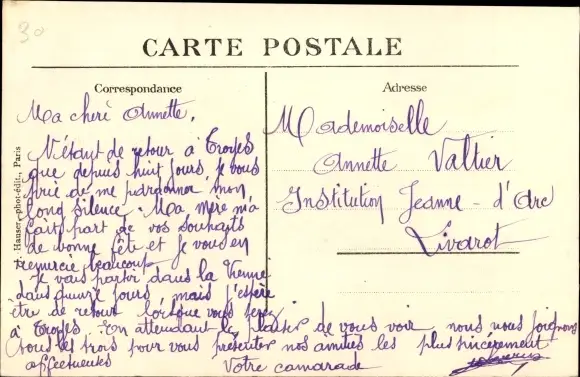 30
CARTE POSTALE
Correspondance
Adresse
Ma cheré Annette,
N'étant de retour à Troyes
que depuis huit jours, je vous
prie de me pardonner mon
long silence. Ma mère m'a
fait part de vos souhaits
de bonne fête et je vous en
remercie beaucoup.
Je vais partir dans la Vienne
dans quinze jours, mais j'espère
être de retour lorsque vous serez
à Troyes. En attendant le plaisir de vous voir, nous nous joignons
tous les trois pour vous présenter nos amitiés les plus sincèrement
affectueuses
Votre camarade
Mademoiselle
Annette Valtier
Institution Jeanne-d'Arc
Livarot
Hauser, phot-édit., Paris